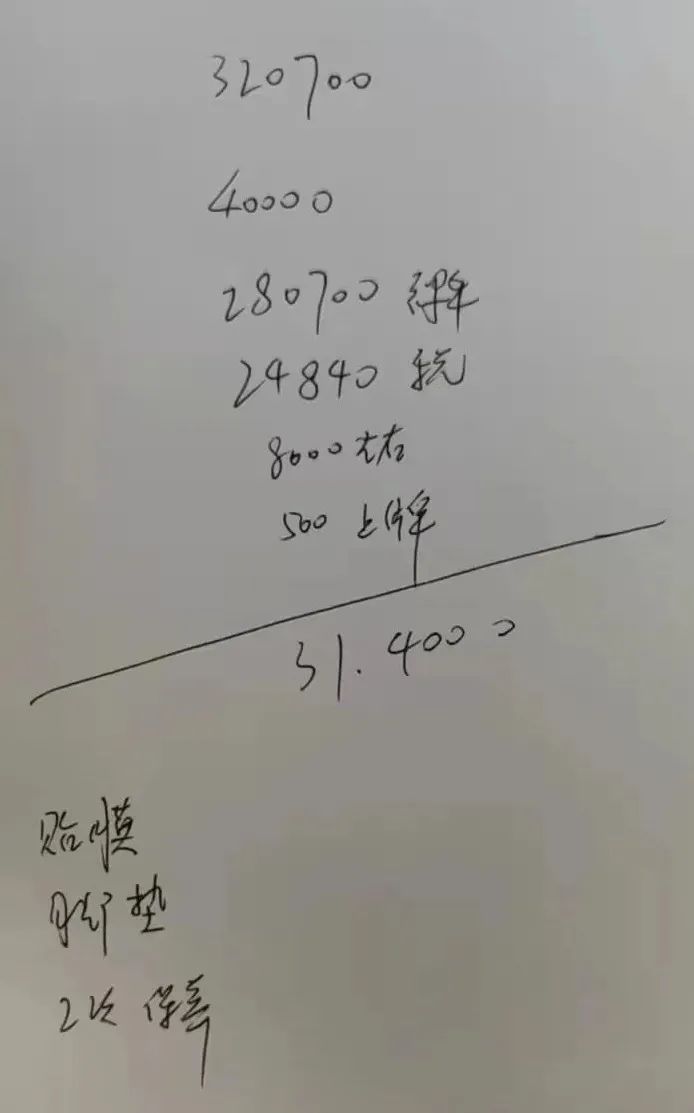 320700
40000
280700 裸车
24840 税
8000 左右
500 上牌
31.4000
贴膜
脚垫
2次 保养